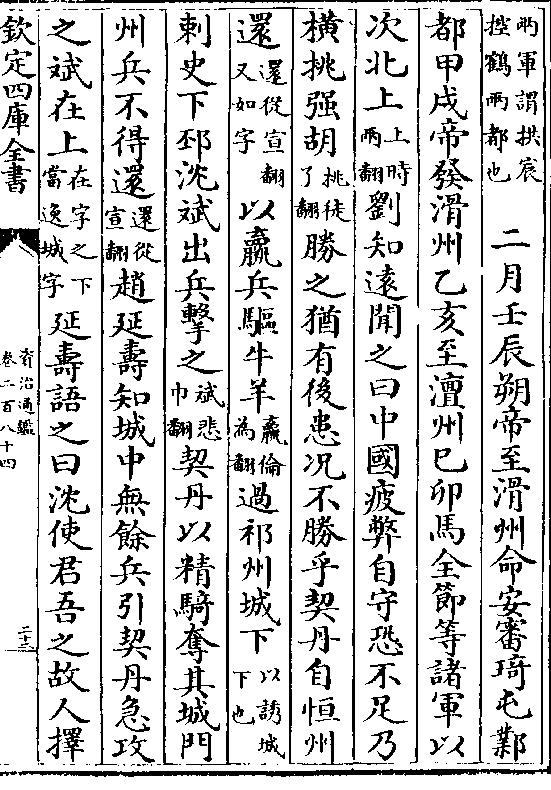 兩軍謂拱宸控鶴兩都也 二月壬辰朔帝至滑州命安審琦屯鄴
都甲戌帝發滑州乙亥至澶州已卯馬全節等諸軍以
次北上上時兩翻劉知遠聞之曰中國疲弊自守恐不足乃
橫挑强胡挑徒了翻勝之猶有後患况不勝乎契丹自恒州
還還從宣翻又如字以羸兵驅牛羊羸倫為翻過祁州城下以誘城下也
刺史下邳沈斌出兵擊之斌悲巾翻契丹以精騎奪其城門
州兵不得還還從宣翻趙延壽知城中無餘兵引契丹急攻
之斌在上在字之下當逸城字延壽語之曰沈使君吾之故人擇
欽定四庫全書
資治通鑑
卷二百八十四
二十三